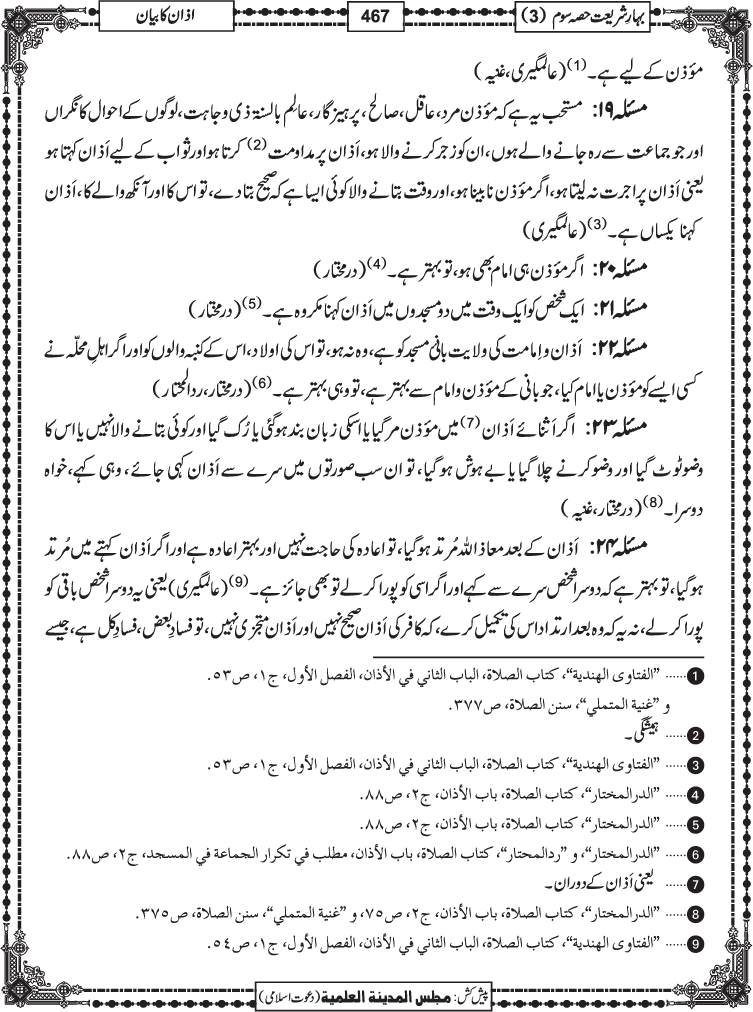 بہار شریعت حصہ سوم (3)
467
اذان کا بیان
مؤذن کے لیے ہے۔ (1) (عالمگیری، غنیہ)
مسئلہ ۱۹: مستحب یہ ہے کہ مؤذن مرد، عاقل، صالح، پرہیزگار، عالم بالسنۃ ذی وجاہت، لوگوں کے احوال کا نگراں
اور جو جماعت سے رہ جانے والے ہوں، ان کو زجر کرنے والا ہو، اَذان پر مداومت (2) کرتا ہو اور ثواب کے لیے اَذان کہتا ہو
یعنی اَذان پر اجرت نہ لیتا ہو، اگر مؤذن نابینا ہو، اور وقت بتانے والا کوئی ایسا ہے کہ صحیح بتا دے، تو اس کا اور آنکھ والے کا، اَذان
کہنا یکساں ہے۔ (3) (عالمگیری)
مسئلہ ۲۰: اگر مؤذن ہی امام بھی ہو، تو بہتر ہے۔ (4) (درمختار)
مسئلہ ۲۱: ایک شخص کو ایک وقت میں دو مسجدوں میں اَذان کہنا مکروہ ہے۔ (5) (درمختار)
مسئلہ ۲۲: اَذان و اِمامت کی ولایت بانیٔ مسجد کو ہے، وہ نہ ہو، تو اس کی اولاد، اس کے کنبہ والوں کو اور اگر اہلِ محلّہ نے
کسی ایسے کو مؤذن یا امام کیا، جو بانی کے مؤذن و امام سے بہتر ہے، تو وہی بہتر ہے۔ (6) (درمختار، ردالمحتار)
مسئلہ ۲۳: اگر اَثنائے اَذان (7) میں مؤذن مر گیا یا اسکی زبان بند ہوگئی یا رُک گیا اور کوئی بتانے والا نہیں یا اس کا
وضو ٹوٹ گیا اور وضو کرنے چلا گیا یا بے ہوش ہوگیا، تو ان سب صورتوں میں سرے سے اَذان کہی جائے، وہی کہے، خواہ
دوسرا۔ (8) (درمختار، غنیہ)
مسئلہ ۲۴: اَذان کے بعد معاذ اللہ مُرتد ہوگیا، تو اعادہ کی حاجت نہیں اور بہتر اعادہ ہے اور اگر اَذان کہتے میں مُرتد
ہوگیا، تو بہتر ہے کہ دوسرا شخص سرے سے کہے اور اگر اسی کو پورا کر لے تو بھی جائز ہے۔ (9) (عالمگیری) یعنی یہ دوسرا شخص باقی کو
پورا کر لے، نہ یہ کہ وہ بعد ارتداد اس کی تکمیل کرے، کہ کافر کی اَذان صحیح نہیں اور اَذان متجزی نہیں، تو فسادِ بعض، فسادِ کل ہے، جیسے
1 ...... "الفتاوى الهندية"، كتاب الصلاة، الباب الثاني في الأذان، الفصل الأول، ج١، ص٥٣.
و "غنية المتملي"، سنن الصلاة، ص٣٧٧.
2 ...... ہمیشگی۔
3 ...... "الفتاوى الهندية"، كتاب الصلاة، الباب الثاني في الأذان، الفصل الأول، ج١، ص٥٣.
4 ...... "الدرالمختار"، كتاب الصلاة، باب الأذان، ج٢، ص٨٨.
5 ...... "الدرالمختار"، كتاب الصلاة، باب الأذان، ج٢، ص٨٨.
6 ...... "الدرالمختار"، و "ردالمحتار"، كتاب الصلاة، باب الأذان، مطلب في تكرار الجماعة في المسجد، ج٢، ص٨٨.
7 ...... یعنی اَذان کے دوران۔
8 ...... "الدرالمختار"، كتاب الصلاة، باب الأذان، ج٢، ص٧٥، و "غنية المتملي"، سنن الصلاة، ص٣٧٥.
9 ...... "الفتاوى الهندية"، كتاب الصلاة، الباب الثاني في الأذان، الفصل الأول، ج١، ص٥٤.
پیش کش: مجلس المدینة العلمیة (دعوت اسلامی)